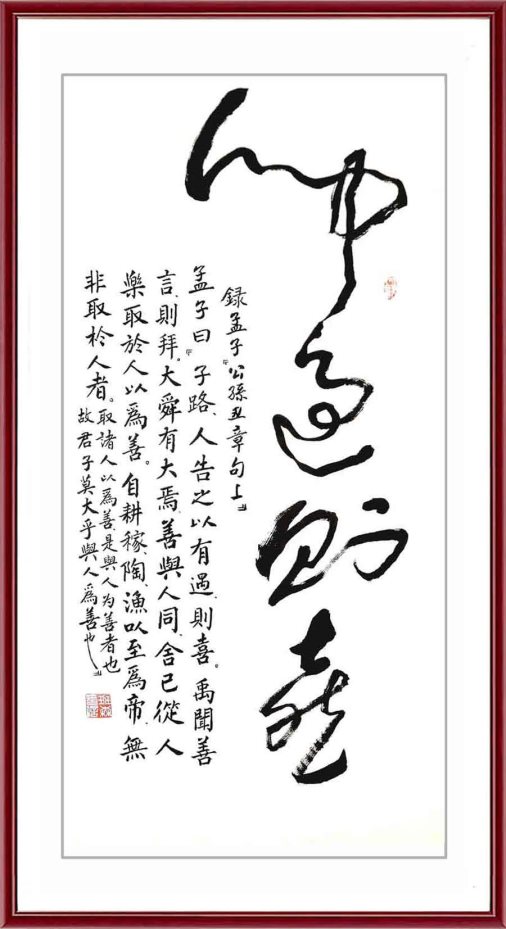 聞過則喜
録孟子『公孫丑章句上』
孟子曰『子路、人告之以有過、則喜。禹聞善
言、則拜。大舜有大焉、善與人同、舍己從人
樂取於人以爲善。自耕稼、陶、漁以至爲帝、無
非取於人者。取諸人以爲善、是與人为善者也
故君子莫大乎與人爲善也』